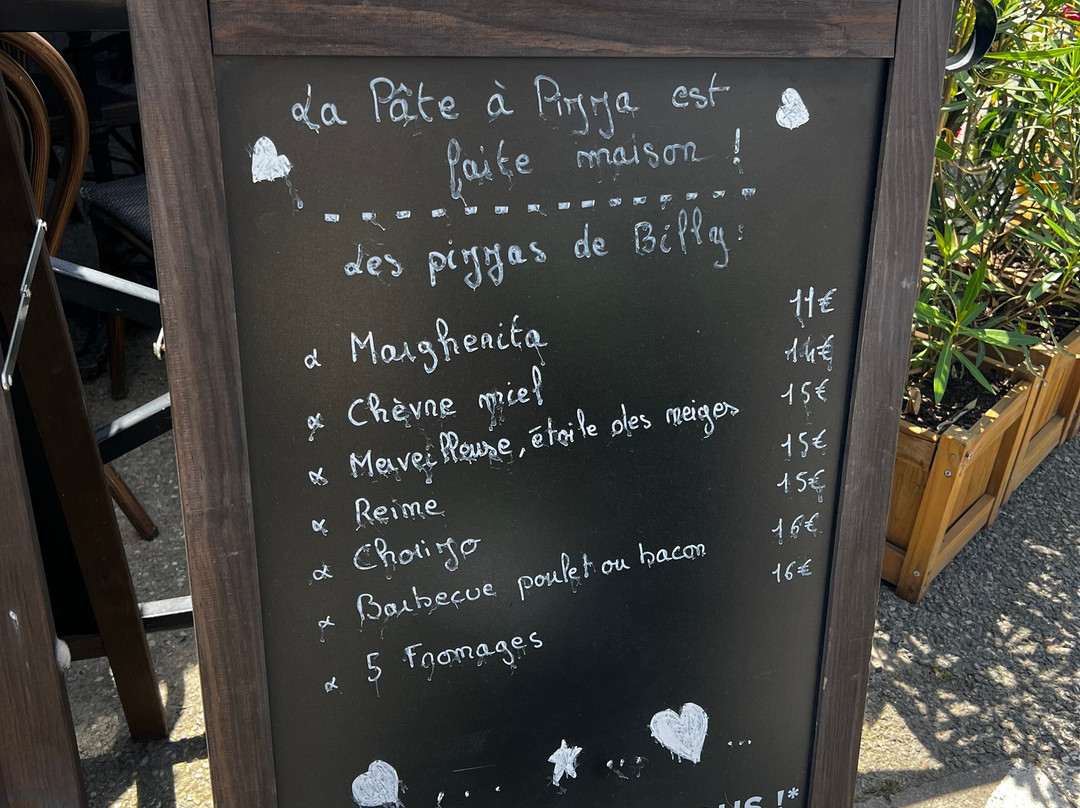 La Pâte à Pizza est
faite maison !
Les pizzas de Billy :
Margherita 11€
Chèvre miel 14€
Merveilleuse, étoile des neiges 15€
Reine 15€
Chorizo 15€
Barbecue poulet ou bacon 16€
5 Fromages 16€